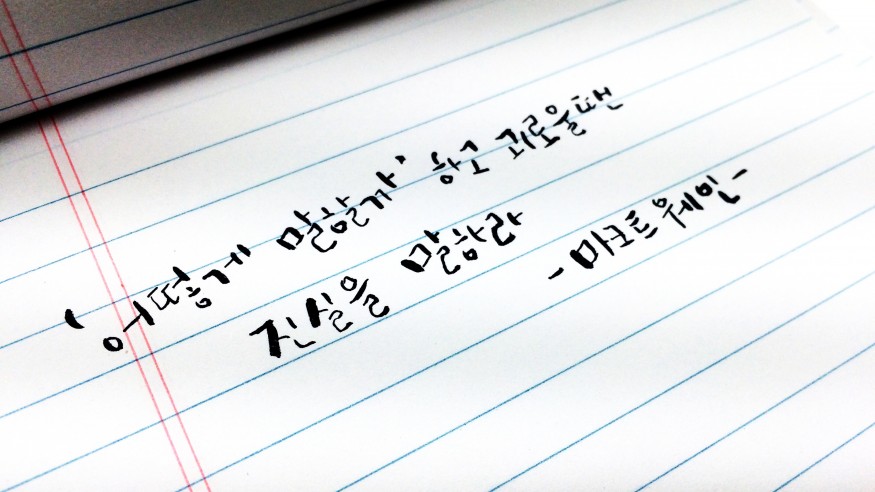 '어떻게 말할까' 하고 괴로울땐
진실을 말하라
- 마크트웨인 -